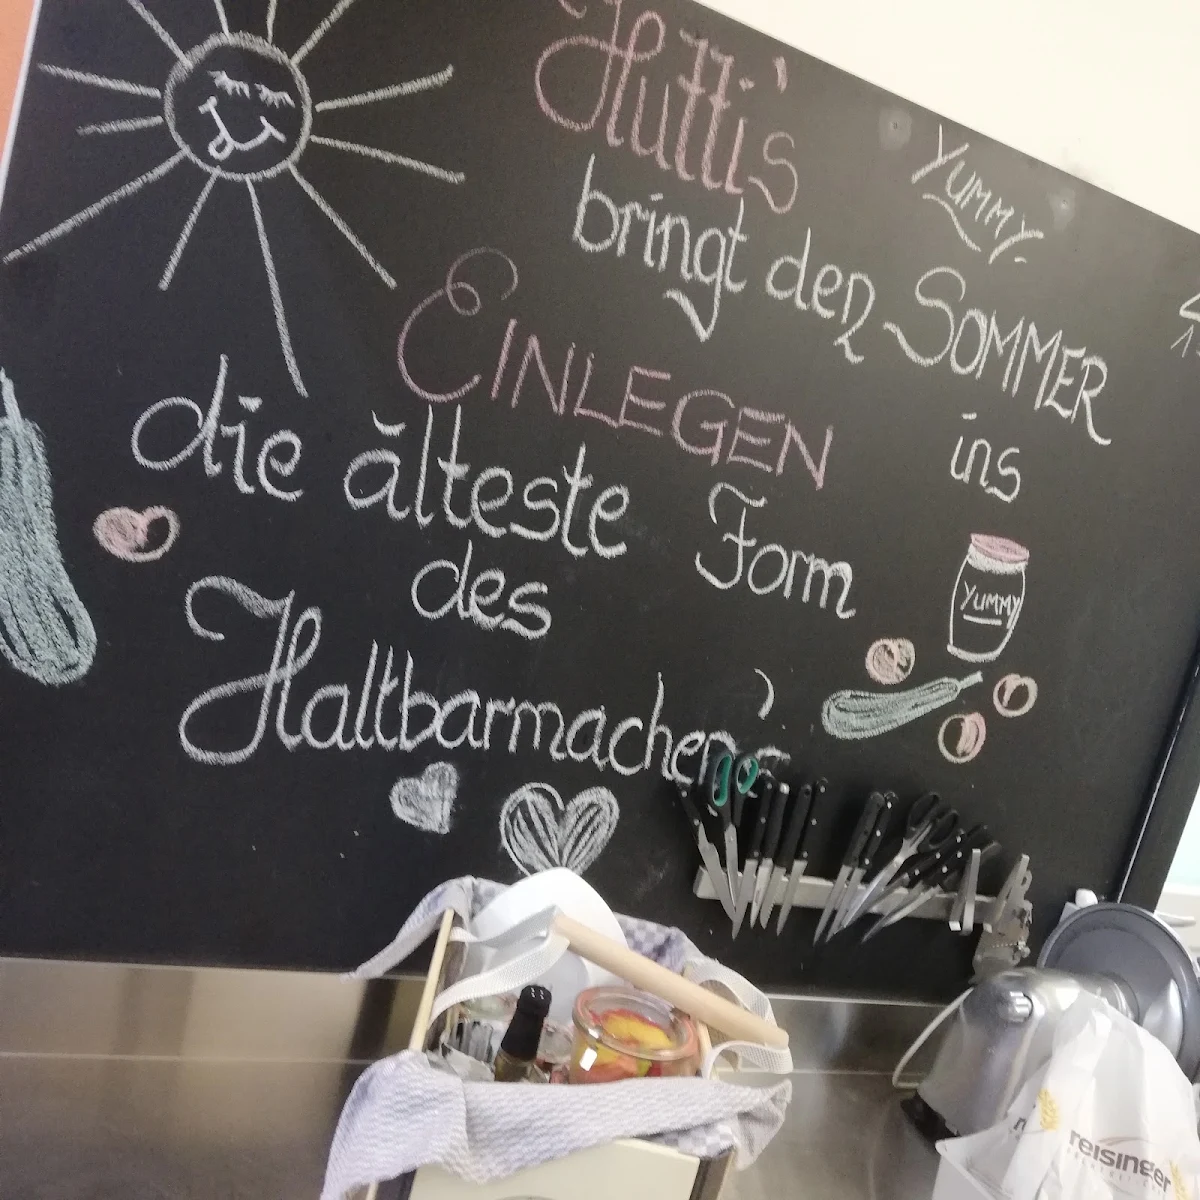 Hutti's
Yummy
bringt den SOMMER
ins
EINLEGEN
die älteste Form
des
Haltbarmachens
YUMMY
reisinger